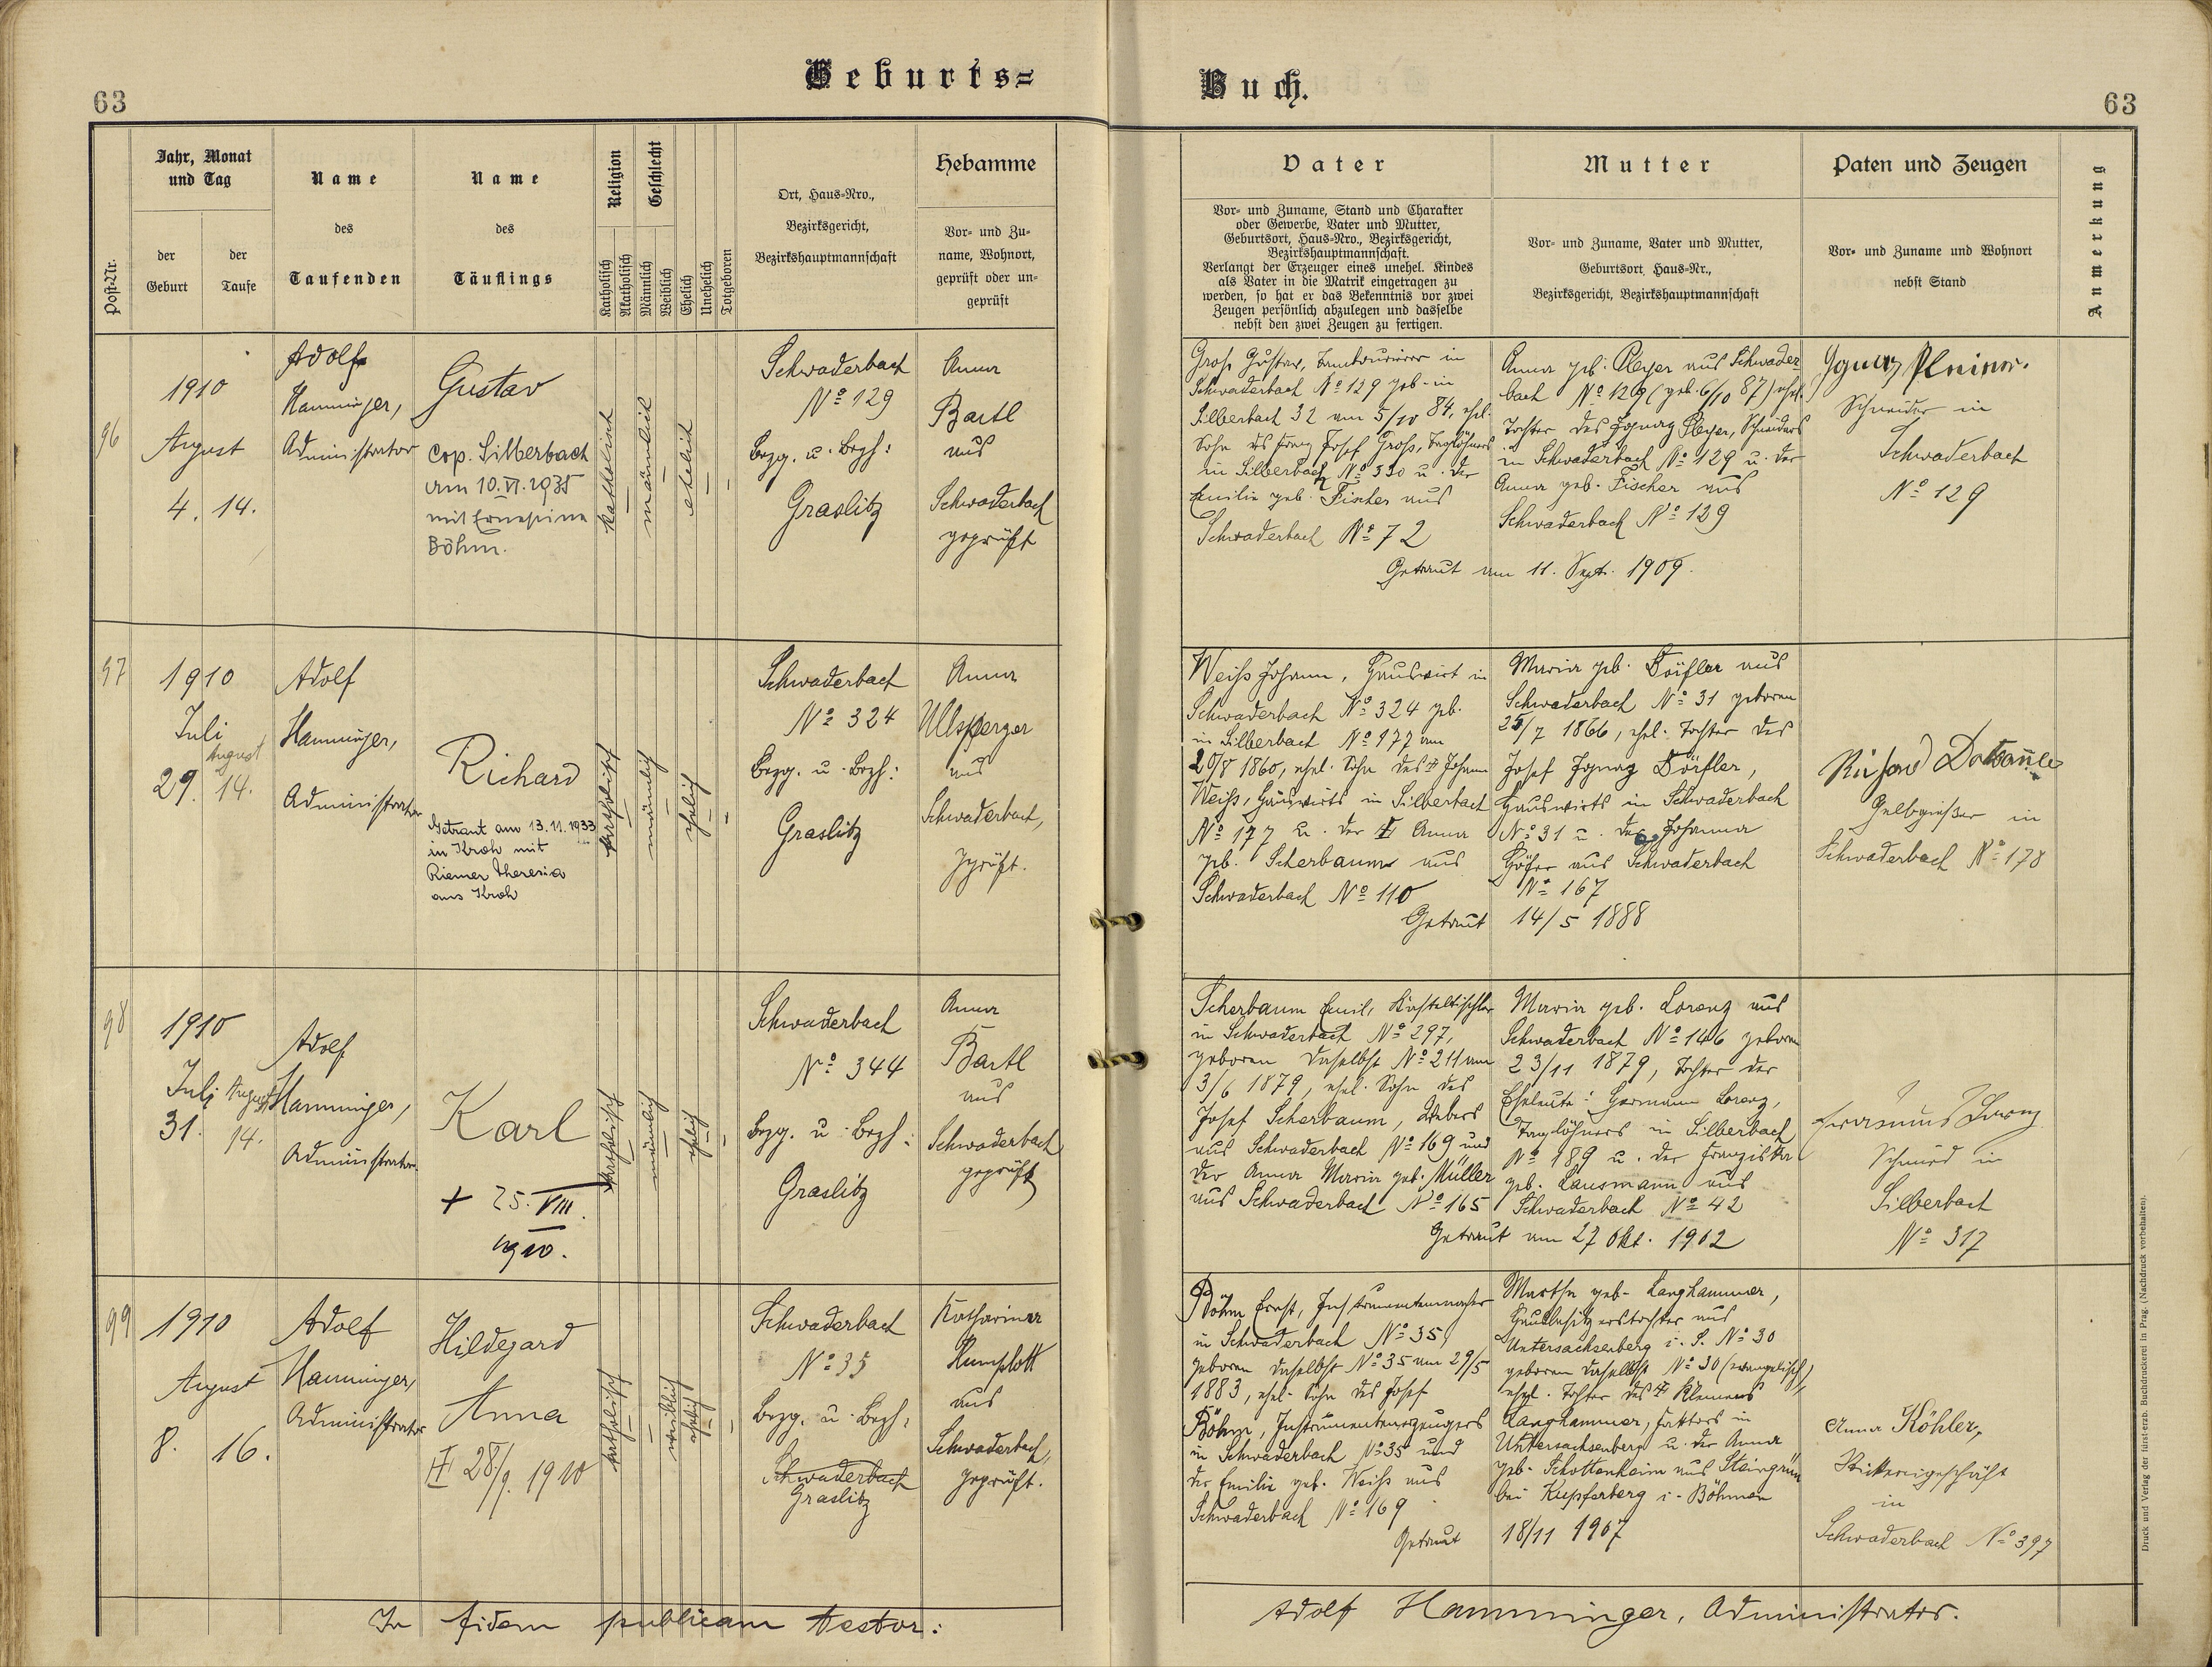 Geburts=
Buch.
63
63
Post-Nr.
Jahr, Monat
und Tag
der
Geburt
der
Taufe
Name
des
Taufenden
Name
des
Täuflings
Religion
Katholisch
Akatholisch
Geschlecht
Männlich
Weiblich
Ehelich
Unehelich
Totgeboren
Ort, Haus-Nro.,
Bezirksgericht,
Bezirkshauptmannschaft
Hebamme
Vor- und Zu-
name, Wohnort,
geprüft oder un-
geprüft
Vater
Vor- und Zuname, Stand und Charakter
oder Gewerbe, Vater und Mutter,
Geburtsort, Haus-Nro., Bezirksgericht,
Bezirkshauptmannschaft.
Verlangt der Erzeuger eines unehel. Kindes
als Vater in die Matrik eingetragen zu
werden, so hat er das Bekenntnis vor zwei
Zeugen persönlich abzulegen und dasselbe
nebst den zwei Zeugen zu fertigen.
Mutter
Vor- und Zuname, Vater und Mutter,
Geburtsort, Haus-Nr.,
Bezirksgericht, Bezirkshauptmannschaft
Paten und Zeugen
Vor- und Zuname und Wohnort
nebst Stand
Anmerkung
96
1910
August
4. 14.
Adolf
Hamminger,
Administrator
Gustav
Cop. Silberbach
am 10.VI.1935
mit Ernestine
Böhm.
katholisch
männlich
ehelich
Schwaderbach
No 129
bezg. u. bezh:
Graslitz
Anna
Bartl
aus
Schwaderbach
geprüft
Groß Gustav, Tambourierer in
Schwaderbach No 129 geb. in
Silberbach 32 am 5/10 84, ehel.
Sohn des Franz Josef Groß, Taglöhners
in Silberbach No 330 u. der
Emilie geb. Fischer aus
Schwaderbach No 72
Anna geb. Pleyer aus Schwader-
bach No 129 (geb. 6/10 87) ehel.
Tochter des Ignaz Pleyer, Schneiders
in Schwaderbach No 129 u. der
Anna geb. Fischer aus
Schwaderbach No 129
Getraut am 11. Sept. 1909.
Ignaz
Schneider in
Schwaderbach
No 129
97
1910
Juli
August
29. 14.
Adolf
Hamminger,
Administrator
Richard
Getraut am 13.11.1933
in Kroh mit
Riemer Theresia
aus Kroh
katholisch
männlich
ehelich
Schwaderbach
No 324
bezg. u. bezh:
Graslitz
Anna
Ullsperger
aus
Schwaderbach,
geprüft.
Weiß Johann, Hauswirt in
Schwaderbach No 324 geb.
in Silberbach No 177 am
20/8 1860, ehel. Sohn des † Johann
Weiß, Hauswirts in Silberbach
No 177 u. der † Anna
geb. Scherbaum aus
Schwaderbach No 110
Maria geb. Dörfler aus
Schwaderbach No 31 geboren
25/7 1866, ehel. Tochter des
Josef Ignaz Dörfler,
Hauswirts in Schwaderbach
No 31 u. der Johanna
Höfer aus Schwaderbach
No 167
Getraut 14/5 1888
Richard
Gelbgießer in
Schwaderbach No 178
98
1910
Juli August
31. 14.
Adolf
Hamminger,
Administrator.
Karl
+ 25. VIII.
1910.
katholisch
männlich
ehelich
Schwaderbach
No 344
bezg. u. bezh:
Graslitz
Anna
Bartl
aus
Schwaderbach
geprüft
Scherbaum Emil,
in Schwaderbach No 297,
geboren daselbst No 211 am
3/6 1879, ehel. Sohn des
Josef Scherbaum, Webers
aus Schwaderbach No 169 und
der Anna Maria geb. Müller
aus Schwaderbach No 165
Maria geb. Lorenz aus
Schwaderbach No 146 geboren
23/11 1879, Tochter der
Eheleute: Hermann Lorenz,
Taglöhners in Silberbach
No 189 u. der Franziska
geb. Lausmann aus
Schwaderbach No 42
Getraut am 27 Okt. 1902
Erasmus Lorenz
Schmied in
Silberbach
No 317
99
1910
August
8. 16.
Adolf
Hamminger,
Administrator
Hildegard
Anna
† 28/9. 1910
katholisch
weiblich
ehelich
Schwaderbach
No 35
bezg. u. bezh:
Schwaderbach
Graslitz
Katharina
Rumplott
aus
Schwaderbach,
geprüft.
Böhm Ernst, Instrumentenmacher
in Schwaderbach No 35,
geboren daselbst No 35 am 29/5
1883, ehel. Sohn des Josef
Böhm, Instrumentenerzeugers
in Schwaderbach No 35 und
der Emilie geb. Weiß aus
Schwaderbach No 169
Martha geb. Langhammer,
Hausbesitzerstochter aus
Untersachsenberg i. S. No 30
geboren daselbst No 30 (evangelisch),
ehel. Tochter des † Klemens
Langhammer, Faktors in
Untersachsenberg u. der Anna
geb. Schottenheim aus Steingrün
bei Kupferberg i. Böhmen
Getraut 18/11 1907
Anna Köhler,
Stickereigeschäft
in
Schwaderbach No 397
In fidem publicam testor:
Adolf Hamminger, Administrator.
Druck und Verlag der fürst-erzb. Buchdruckerei in Prag. (Nachdruck vorbehalten).